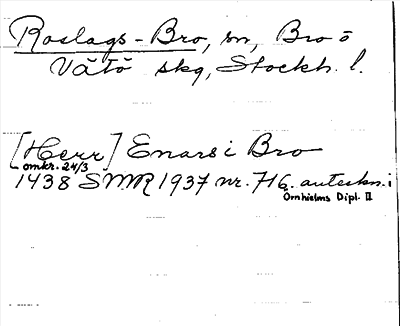 Roslags-Bro, sn, Bro o
Vätö skg, Stockh. l.
[Herr] Enars i Bro
omkr. 24/3
1438 SMR 1937 nr. 716. anteckn. i
Örnhielms Dipl. II